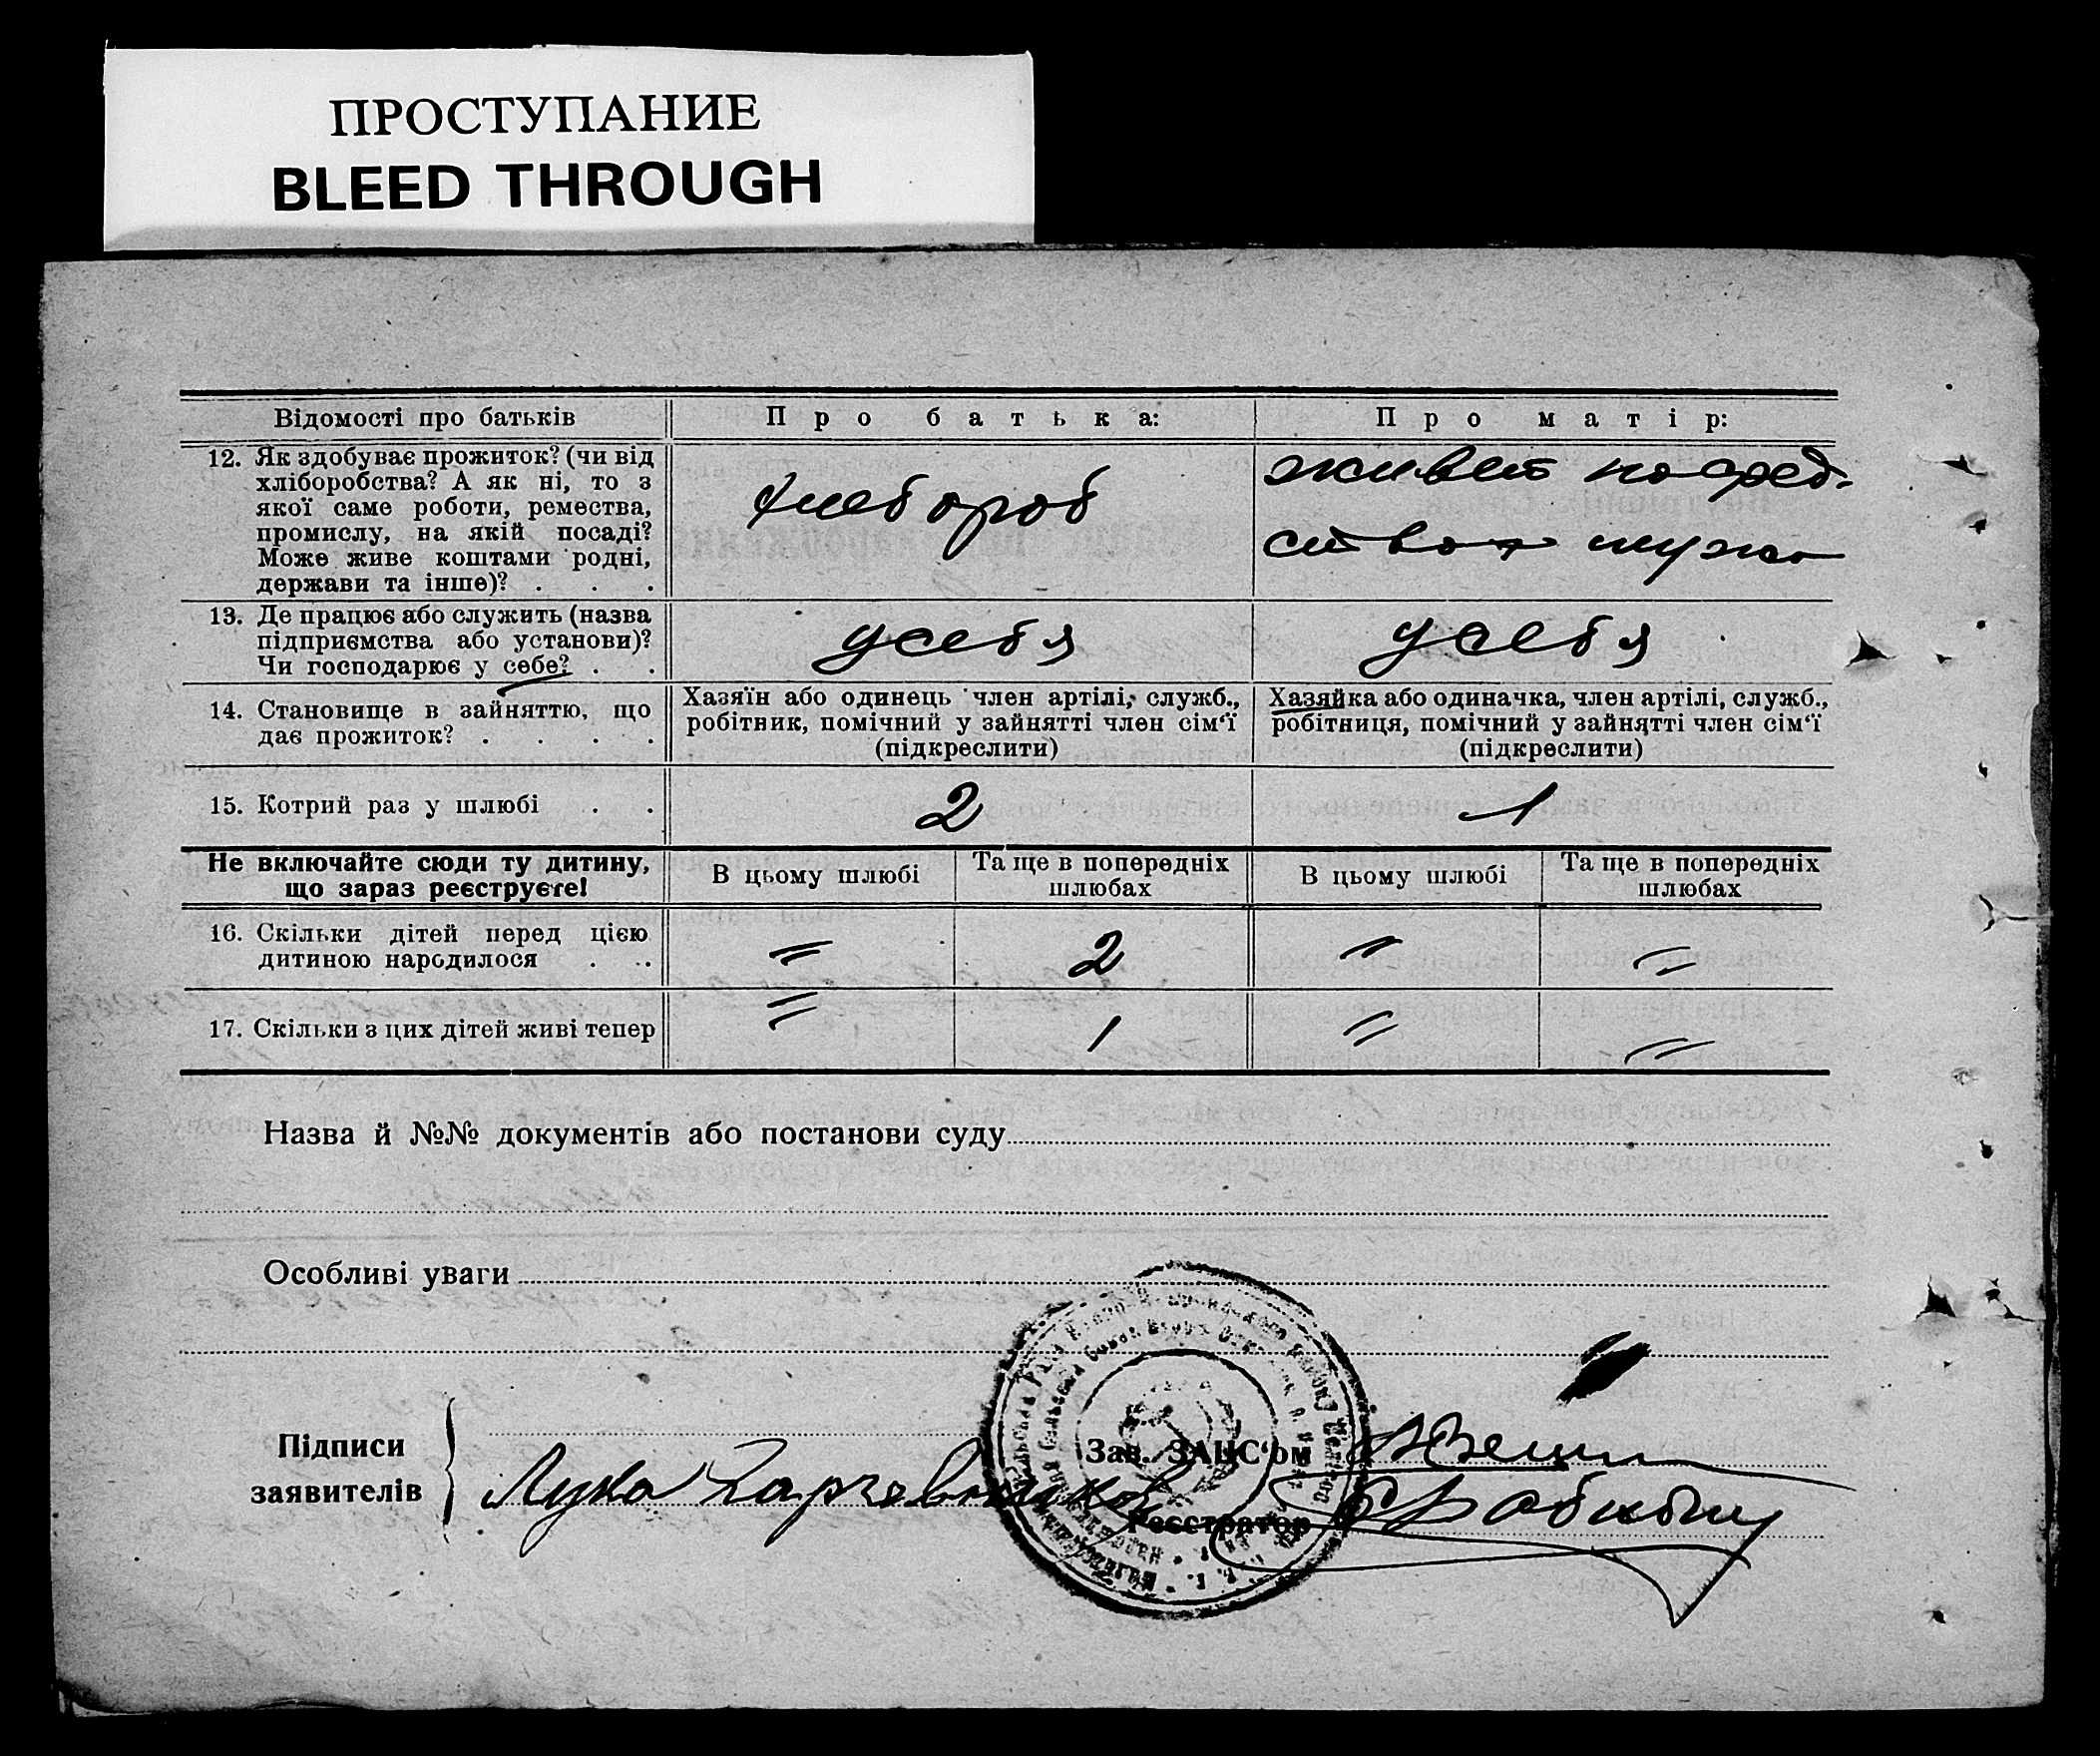 ПРОСТУПАНИЕ
BLEED THROUGH
Відомості про батьків
Про батька:
Про матір:
12. Як здобуває прожиток? (чи від
хліборобства? А як ні, то з
якої саме роботи, ремества,
промислу, на якій посаді?
Може живе коштами родні,
держави та інше)? . . .
хлебороб
живет на сред-
ства мужа
13. Де працює або служить (назва
підприємства або установи)?
Чи господарює у себе? . .
у себя
у себя
14. Становище в зайняттю, що
дає прожиток? . . . .
Хазяїн або одинець член артілі, служб.,
робітник, помічний у зайнятті член сім'ї
(підкреслити)
Хазяйка або одиначка, член артілі, служб.,
робітниця, помічний у зайнятті член сім'ї
(підкреслити)
15. Котрий раз у шлюбі . .
2
1
Не включайте сюди ту дитину,
що зараз реєструєте!
В цьому шлюбі
Та ще в попередніх
шлюбах
В цьому шлюбі
Та ще в попередніх
шлюбах
16. Скільки дітей перед цією
дитиною народилося . ..
=
2
=
=
17. Скільки з цих дітей живі тепер
=
1
=
=
Назва й №№ документів або постанови суду
Особливі уваги
Підписи
заявителів
Лука
Зав. ЗАЦС'ом
Реєстратор